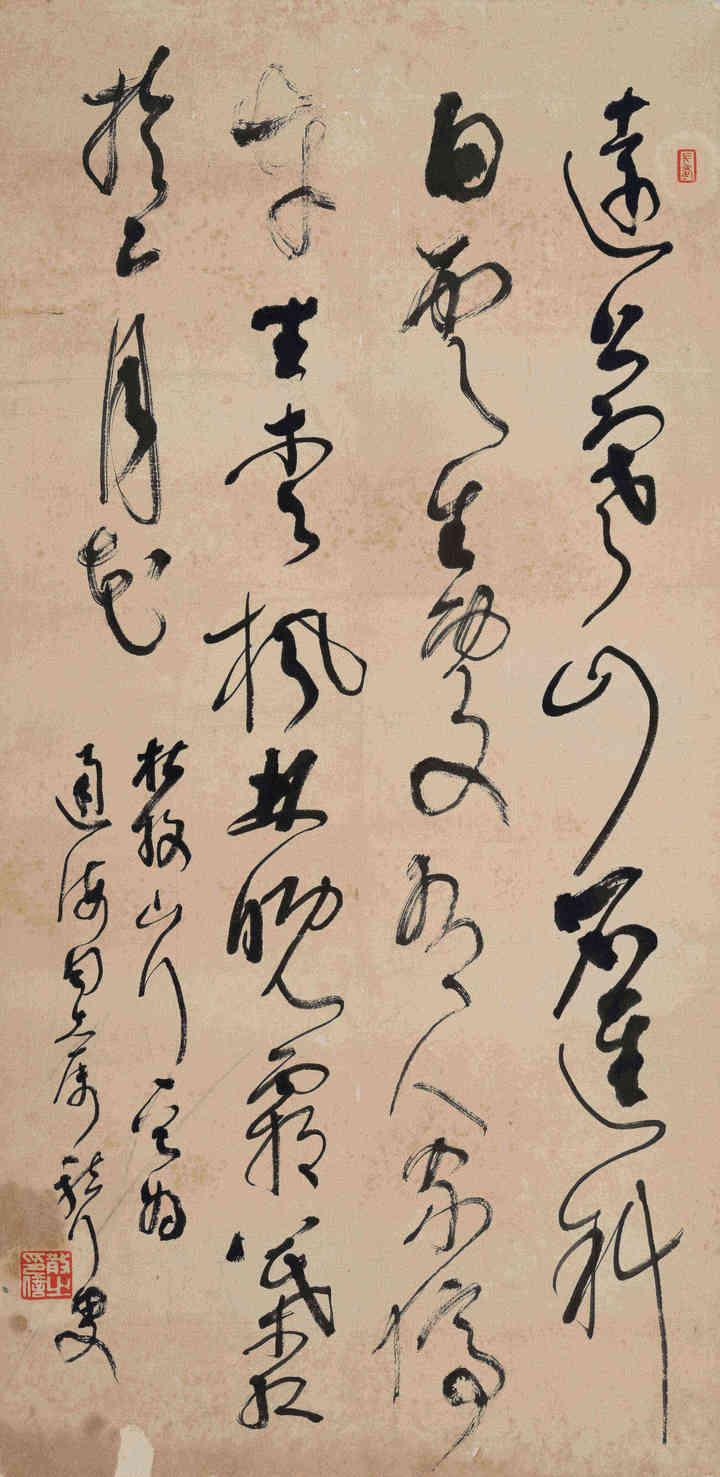 遠上寒山石徑斜
白雲生處有人家停
車坐愛楓林晚霜葉紅
於二月花
杜牧山行
通海同志屬